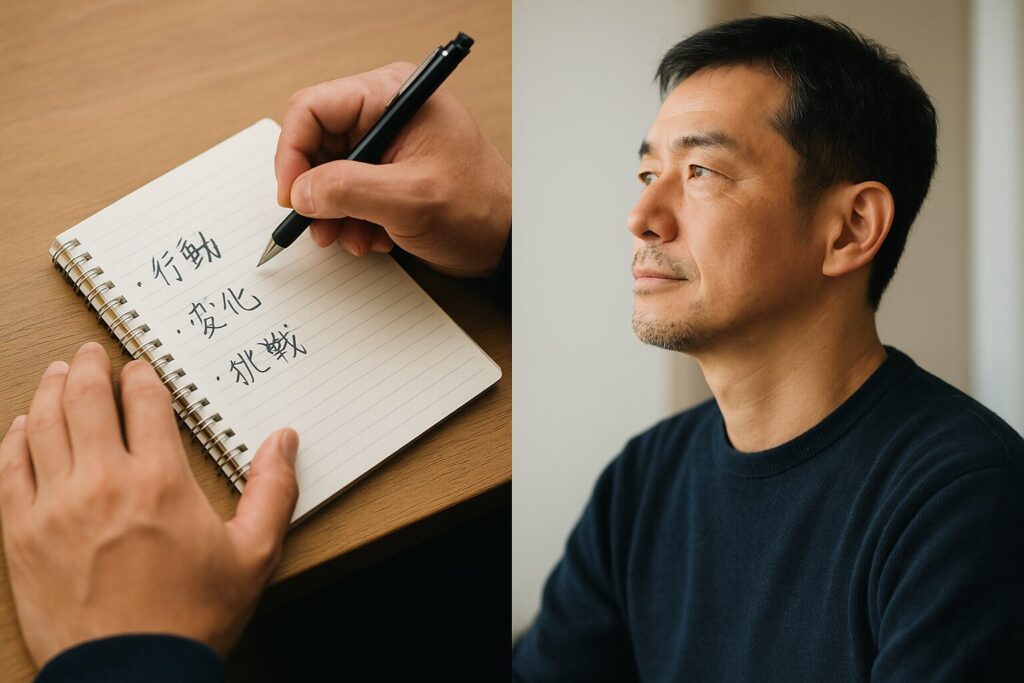 ・行動
・変化
・挑戦